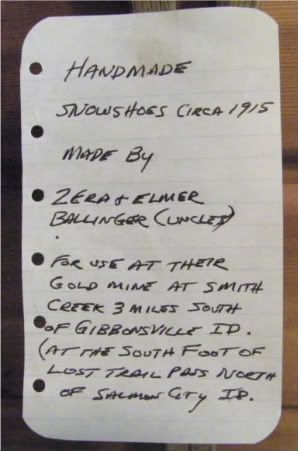 HANDMADE
SNOWSHOES CIRCA 1915
MADE BY
ZERA & ELMER
BALLINGER (UNCLES)
.
FOR USE AT THEIR
GOLD MINE AT SMITH
CREEK 3 MILES SOUTH
OF GIBBONSVILLE ID.
(AT THE SOUTH FOOT OF
LOST TRAIL PASS NORTH
OF SALMON CITY ID.